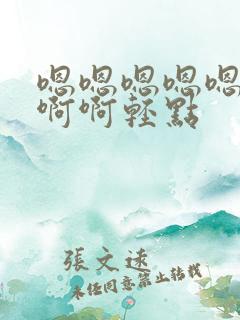 嗯嗯嗯嗯嗯
啊啊轻點
張文遠
未经同意禁止转载